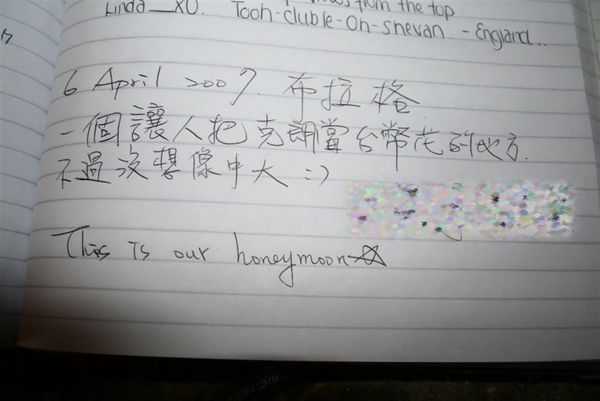 Linda_XU. from the top
Tooh-cluble-Oh-snevan - England...
6 April 2007. 布拉格
一個讓人把克朗當台幣花的地方.
不過沒想像中大 :)
This is our honeymoon☆